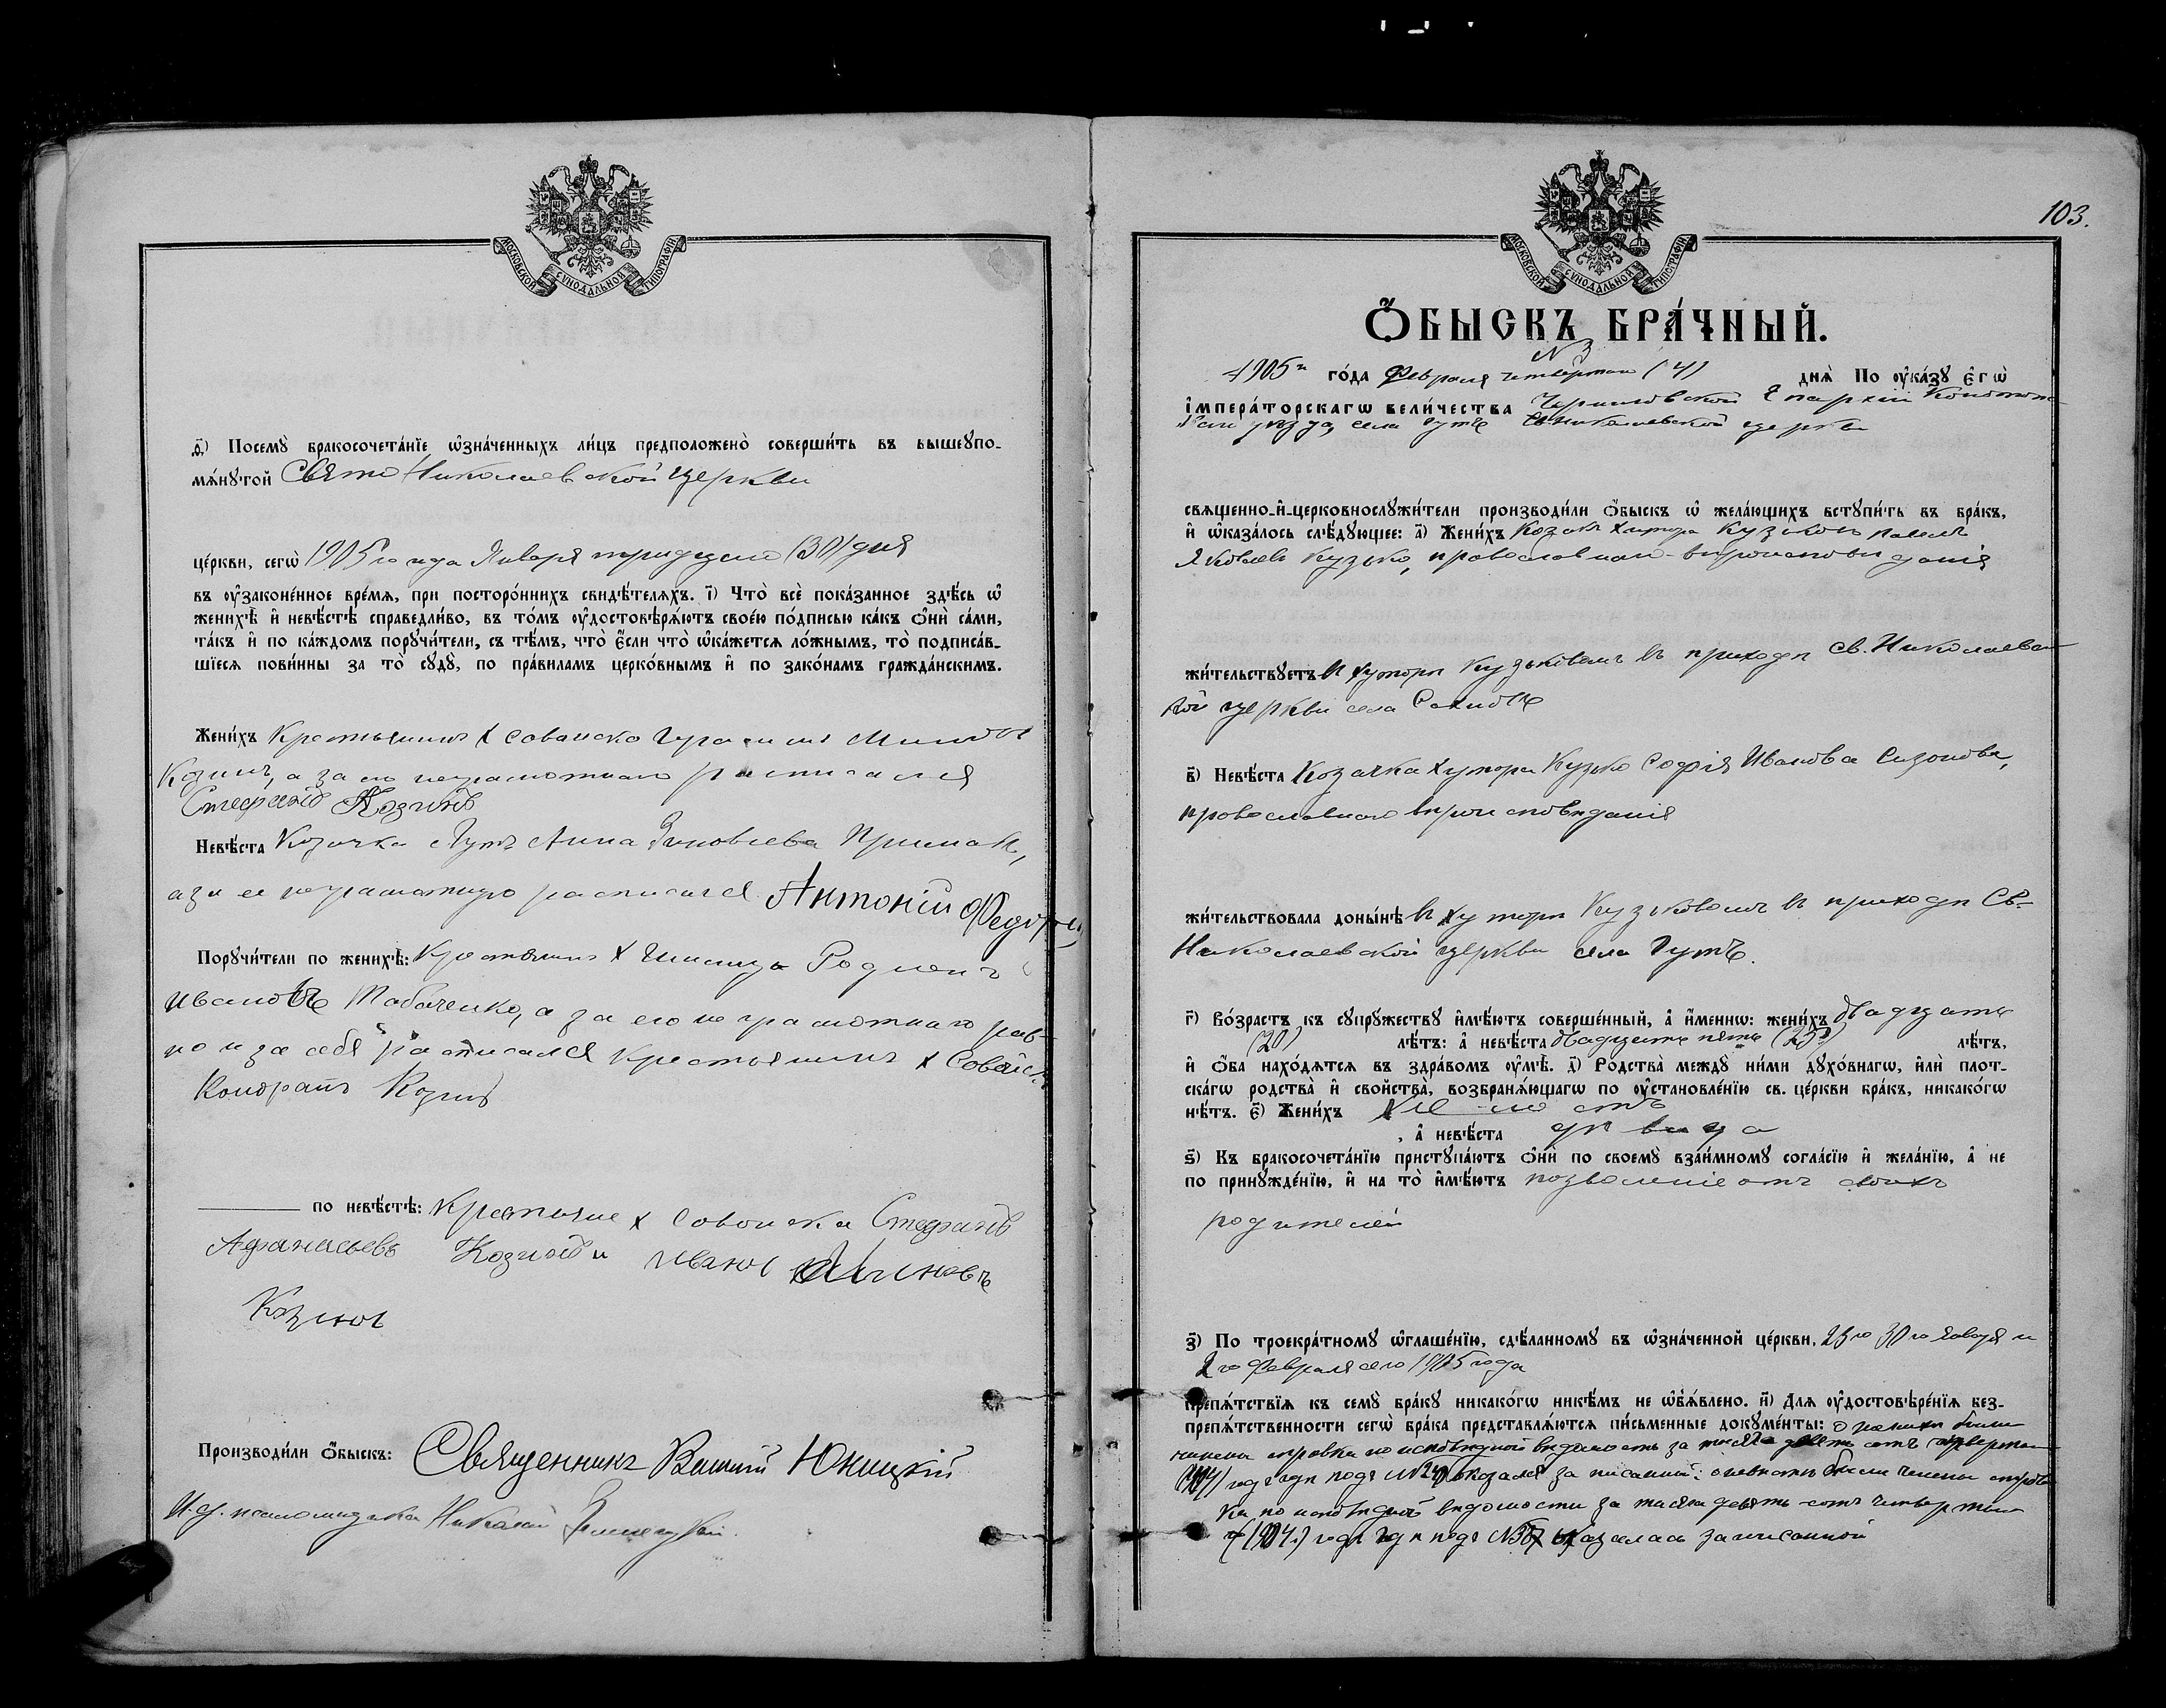 МОСКОВСКОЙ СѴНОДАЛЬНОЙ ТИПОГРАФІИ
ѳ҃) Посемꙋ̀ бракосочета́нїе ѡ҆зна́ченныхъ ли́цъ предположено̀ соверши́ть въ вышеꙋпо-
мѧ́нꙋтой Свято Николаевской церкви
це́ркви, сегѡ̀ 1905 года Января тридцато (30) дня
въ ᲂу҆зако́не́нное вре́мѧ, при посторо́ннихъ свидѣ́телѧхъ. і҃) Что̀ всѐ пока́занное здѣ́сь ѡ҆
женихѣ̀ и҆ невѣ́стѣ справедли́во, въ то́мъ ᲂу҆достовѣрѧ́ютъ свое́ю по́дписью ка́къ ѻ҆нѝ са́ми,
та́къ и҆ по ка́ждомъ порꙋчи́тели, съ тѣ́мъ, что̀ є҆́сли что̀ ѡ҆ка́жетсѧ ло́жнымъ, то̀ подписа́в-
шїесѧ пови́нны за то̀ сꙋдꙋ̀, по пра́виламъ церко́внымъ и҆ по зако́намъ гражда́нскимъ.
Жени́хъ Крестьянинъ х Саванска Герасимъ
Козинъ, а за его неграмотнаго расписался
Стефанъ Козинъ
Невѣ́ста Козачка Гутъ Анна Зиновіева Примакъ,
а за ее неграмотную расписался Антоній Федорец
Порꙋчи́тели по женихѣ̀: Крестьянинъ х Родионъ
Ивановъ Табаченко, а за его неграмотнаго рав-
но и за себя расписался крестьянинъ х Совонск
Кондратъ Козинъ
по невѣ́стѣ: Крестьяне х Совонска Стефанъ
Афанасьевъ Козинъ и Иванъ
Козинъ
Производи́ли ѻ҆́быскъ: Священникъ Василій Юницкій
И. д. псаломщика Николай
103.
МОСКОВСКОЙ СѴНОДАЛЬНОЙ ТИПОГРАФІИ
Ѻ҆́БЫСКЪ БРА́ЧНЫЙ.
N 3
1905 го́да Февраля четвертаго (4) днѧ̀ По ᲂу҆ка́зꙋ є҆гѡ̀
і҆мпера́торскагѡ вели́чества Черниговской Епархіи Конотоп-
скаго уѣзда, села Гутъ Св. Николаевской церкви
свѧщенно-и҆-церковнослꙋжи́тели производи́ли ѻ҆́быскъ ѡ҆ жела́ющихъ встꙋпи́ть въ бра́къ,
и҆ ѡ҆каза́лось слѣ́дꙋющее: а҃) Жени́хъ Козакъ хутора Кузьковъ Павелъ
Яковлевъ Кузько, православнаго вѣроисповѣданія
жи́тельствꙋетъ въ хуторѣ Кузьковомъ въ приходѣ св. Николаевс-
кой церкви села
в҃) Невѣ́ста Козачка хутора Кузько Софія Иванова Сизонова,
православнаго вѣроисповѣданія
жи́тельствовала доны́нѣ въ хуторѣ Кузьковомъ въ приходѣ Св.
Николаевской церкви села Гутъ.
г҃) Во́зрастъ къ сꙋпрꙋжествꙋ и҆мѣ́ютъ соверше́нный, а҆ и҆́менно: жени́хъ двадцать
(20) лѣ́тъ: а҆ невѣ́ста двадцать пять (25) лѣ́тъ,
и҆ ѻ҆́ба нахо́дѧтсѧ въ здра́вомъ ᲂу҆мѣ̀. д҃) Родства̀ междꙋ ни́ми дꙋхо́внагѡ, и҆лѝ плот-
ска́гѡ родства̀ и҆ свойства̀, возбранѧ́ющагѡ по ᲂу҆становле́нїю св. це́ркви бра́къ, никако́гѡ
нѣ́тъ. є҃) Жени́хъ холостъ
, а҆ невѣ́ста дѣвица
ѕ҃) Къ бракосочета́нїю пристꙋпа́ютъ ѻ҆нѝ по своемꙋ̀ взаи́мномꙋ согла́сїю и҆ жела́нїю, а҆ не
по принꙋжде́нїю, и҆ на то̀ и҆мѣ́ютъ позволеніе отъ своихъ
родителей
з҃) По троекра́тномꙋ ѡ҆глаше́нїю, сдѣ́ланномꙋ въ ѡ҆зна́ченной це́ркви, 23го 30го Января и
2го Февраля сего 1905 года
препѧ́тствїѧ къ семꙋ̀ бра́кꙋ никако́гѡ никѣ́мъ не ѡ҆б̾ѧ́влено. и҃) Для ᲂу҆достовѣре́нїѧ без-
препѧ́тственности сегѡ̀ бра́ка представлѧ́ютсѧ пи́сьменные докꙋме́нты: о женихѣ были
чинены справки по исповѣдной вѣдомости за тысяча девять сотъ четвертый
(1904) годъ гдѣ подъ № оказался записанный: о невѣстѣ были чинены справ
ки по исповѣдной вѣдомости за тысяча девять сотъ четвертый
(1904) годъ гдѣ подъ № оказалась записанной